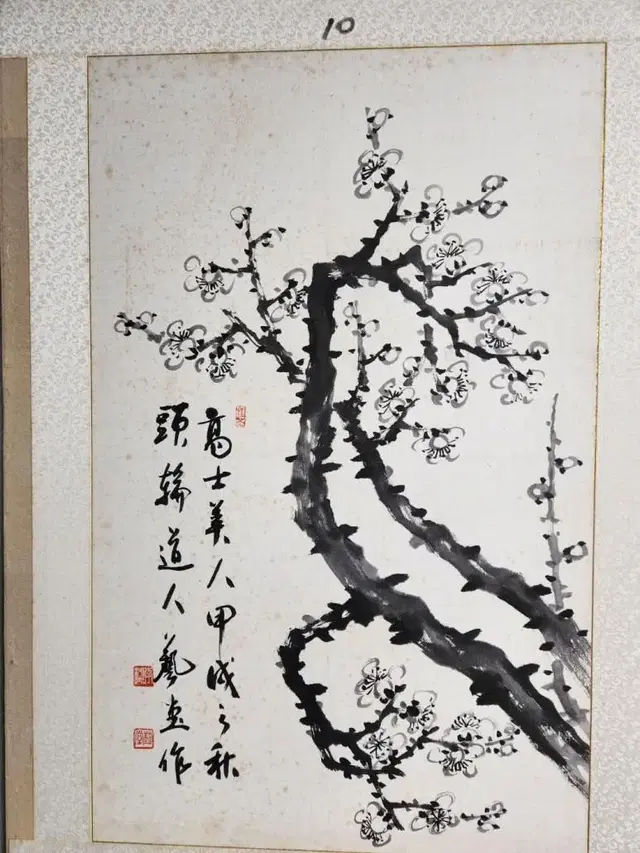 10
高士美人甲戌之秋
頭輪道人藝作